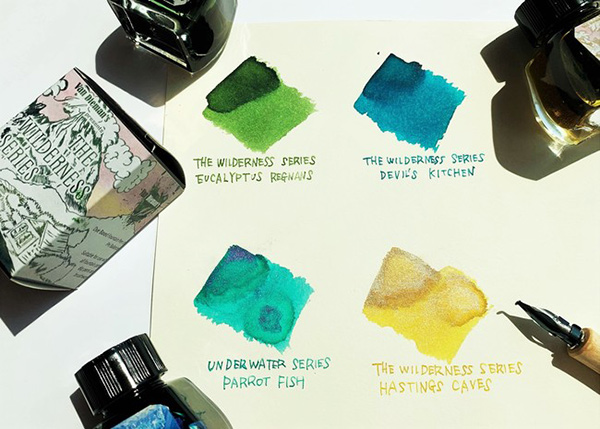 Van Dieman's
THE
WILDERNESS
SERIES
THE WILDERNESS SERIES
EUCALYPTUS REGNANS
THE WILDERNESS SERIES
DEVIL'S KITCHEN
UNDERWATER SERIES
PARROT FISH
THE WILDERNESS SERIES
HASTINGS CAVES